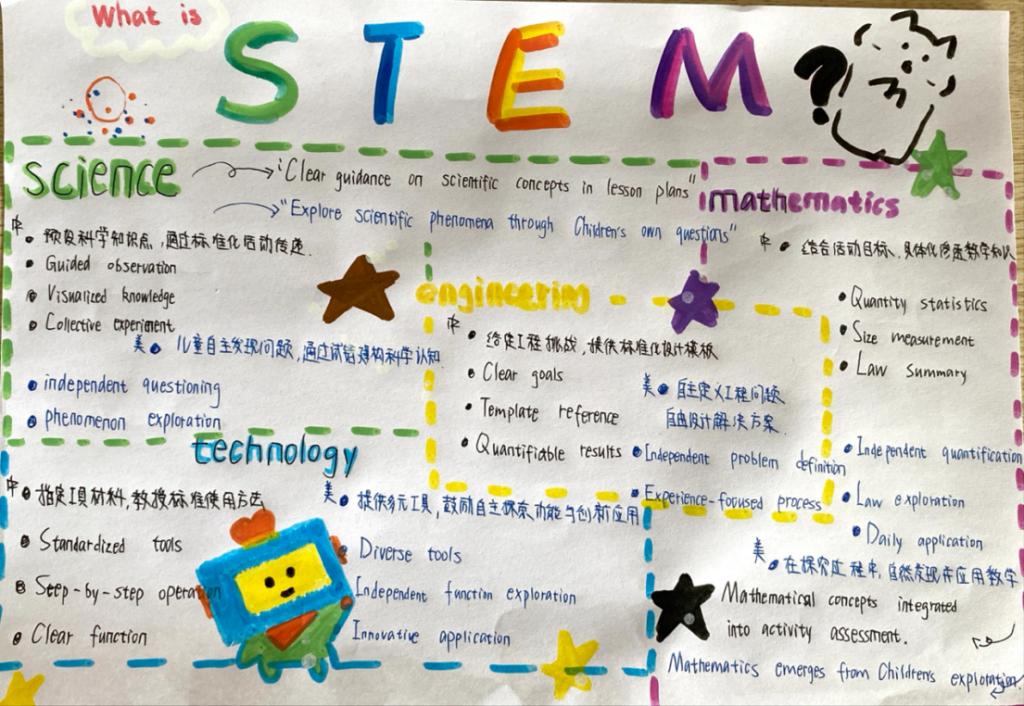 What is
STEM?
science
"Clear guidance on scientific concepts in lesson plans"
"Explore scientific phenomena through Children's own questions"
中 • 预设科学知识点,通过标准化活动传递.
• Guided observation
• Visualized knowledge
• Collective experiment
美 • 儿童自主发现问题,通过试错建构科学认知
• independent questioning
• phenomenon exploration
engineering
中
• 给定工程挑战,提供标准化设计模板
• Clear goals
• Template reference
• Quantifiable results
美 • 自主定义工程问题
自由设计解决方案.
• Independent problem definition
• Experience-focused process
mathematics
中 • 结合活动目标,具体化渗透数学知识
• Quantity statistics
• Size measurement
• Law summary
• Independent quantification
• Law exploration
• Daily application
美 • 在探究过程中,自然发现并应用数学
Mathematical concepts integrated
into activity assessment.
Mathematics emerges from Children's exploration.
technology
中 • 指定工具材料,教授标准使用方法
• Standardized tools
• Step-by-step operation
• Clear function
美 • 提供多元工具,鼓励自主探索功能与创新应用
• Diverse tools
Independent function exploration
Innovative application